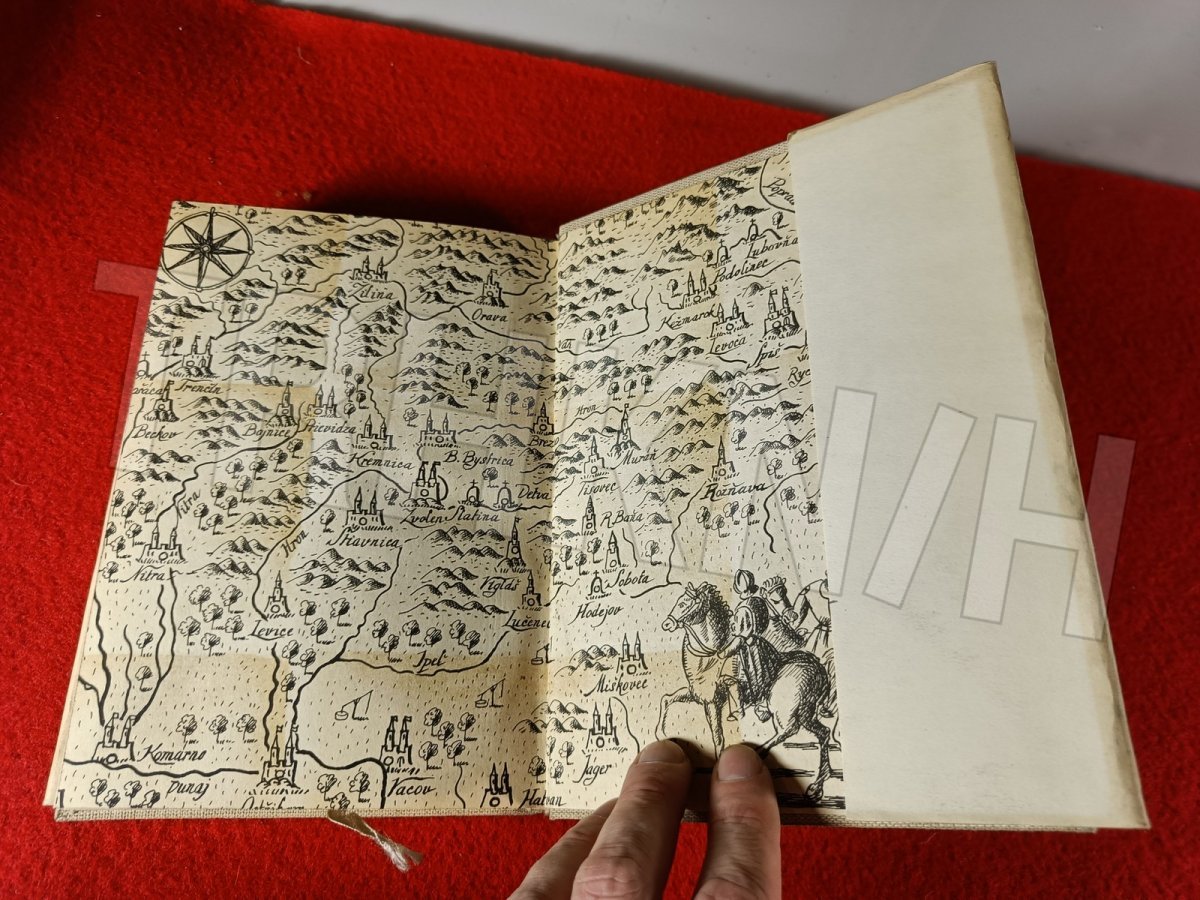 Žilina
Orava
Váh
Lubovňa
Podolinec
Kežmarok
Levoča
Spiš
Trenčín
Beckov
Bojnice
Prievidza
Kremnica
B. Bystrica
Hron
Muráň
Tisovec
Rožňava
Detva
Zvolen
Slatina
Štiavnica
Hron
Nitra
Nitra
R. Baňa
Sobota
Vígľaš
Hodejov
Levice
Ipeľ
Miškovec
Komárno
Dunaj
Vacov
Jager
Hatvan